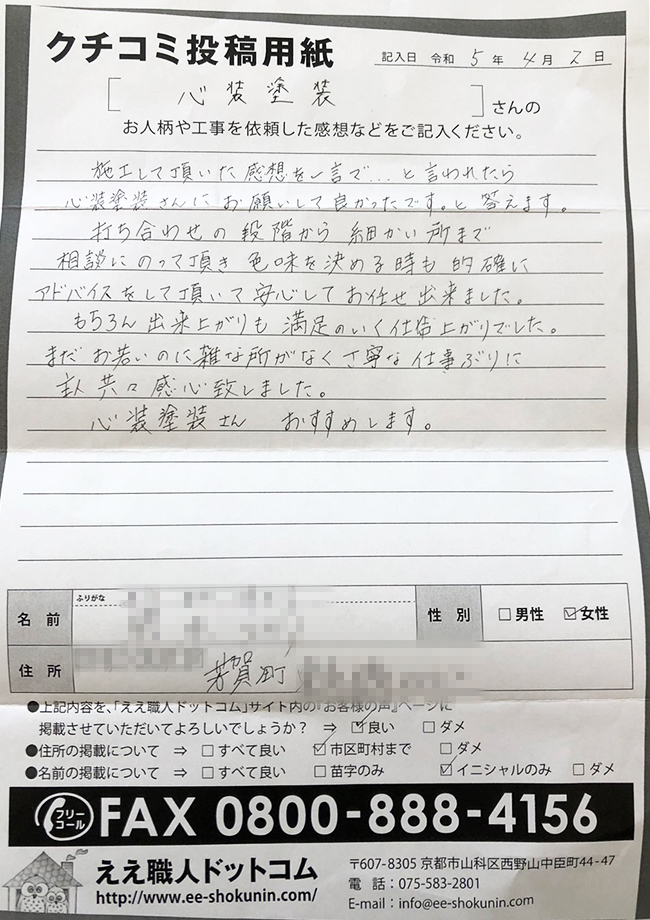 クチコミ投稿用紙
記入日 令和 5 年 4 月 2 日
[ 心装塗装 ] さんの
お人柄や工事を依頼した感想などをご記入ください。
施工して頂いた感想を一言で…と言われたら
心装塗装さんにお願いして良かったです。と答えます。
打ち合わせの段階から細かい所まで
相談にのって頂き色味を決める時も的確に
アドバイスをして頂いて安心してお任せ出来ました。
もちろん出来上がりも満足のいく仕上がりでした。
まだお若いのに雑な所がなく丁寧な仕事ぶりに
主人共々感心致しました。
心装塗装さん おすすめします。
ふりがな
名前
性別 □男性 ☑女性
住所 芳賀町
●上記内容を、「ええ職人ドットコム」サイト内の『お客様の声』ページに
掲載させていただいてよろしいでしょうか? ⇒ ☑良い □ダメ
●住所の掲載について ⇒ □すべて良い ☑市区町村まで □ダメ
●名前の掲載について ⇒ □すべて良い □苗字のみ ☑イニシャルのみ □ダメ
フリーコール FAX 0800-888-4156
ええ職人ドットコム
http://www.ee-shokunin.com/
〒607-8305 京都市山科区西野山中臣町44-47
電話:075-583-2801
E-mail:info@ee-shokunin.com